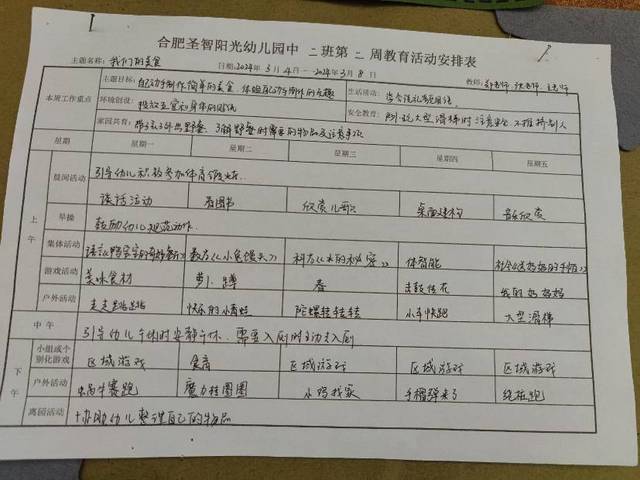 合肥圣智阳光幼儿园中 二 班第 二 周教育活动安排表
主题名称: 我们的美食 日期:2024年 3月 4日 — 2024年3月 8日 教师:
本周工作重点 主题目标: 自己动手制作简单的美食,体验自己动手制作的乐趣 生活活动: 学会说礼貌用语。
环境创设: 投放五官和身体的图纸 安全教育: 玩大型滑梯时注意安全,不推挤别人
家园共育: 带孩子外出野餐,了解野餐时需要的物品及注意事项
星期 星期一 星期二 星期三 星期四 星期五
上午
晨间活动 引导幼儿积极参加体育锻炼。
谈话活动 看图书 欣赏儿歌 桌面建构 音乐欣赏
早操 鼓励幼儿规范动作。
集体活动 数《小兔馒头》 科《水的秘密》 体智能
游戏活动 美味食材 萝卜蹲 春 击鼓传花 我的好妈妈
户外活动 走走跳跳 快乐的小青蛙 陀螺转转转 小车快跑 大型滑梯
中午 引导幼儿午休时安静午休,需要入厕时主动入厕
下午
小组或个别化游戏 区域游戏 食育 区域游戏 区域游戏 区域游戏
户外活动 蜗牛赛跑 魔力挂圈圈 小鸡找家 手榴弹来了 绕桩跑
离园活动 协助幼儿整理自己的物品